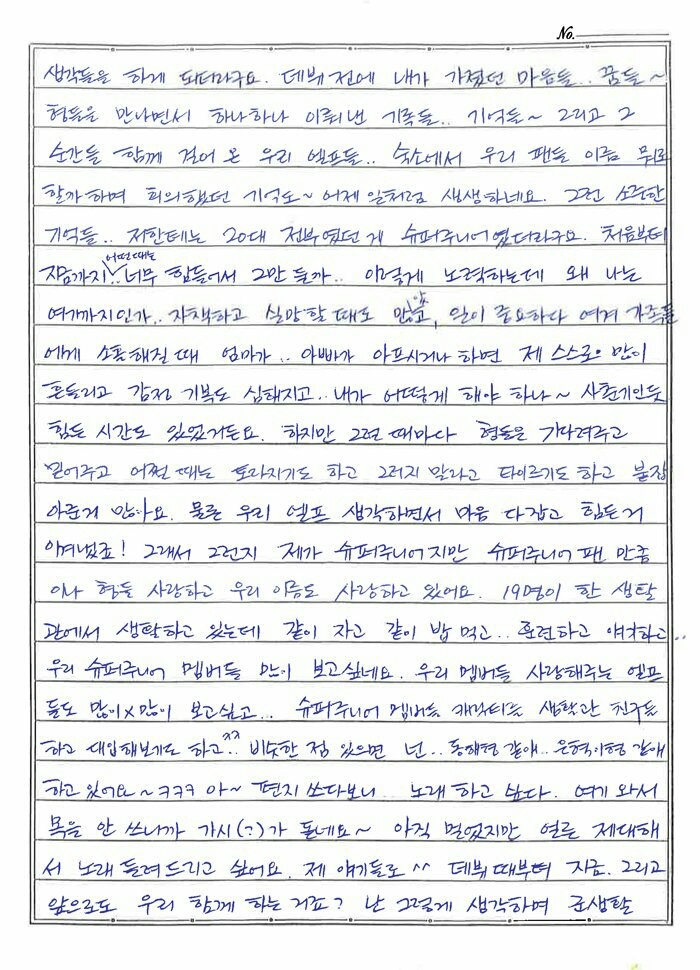 No.
생각들을 하게 되더라구요. 데뷔 전에 내가 가졌던 마음들.. 꿈들~
형들을 만나면서 하나하나 이뤄낸 기록들.. 기억들~ 그리고 그
순간들 함께 걸어 온 우리 엘프들.. 숙소에서 우리 팬들 이름 뭐로
할까하며 회의했던 기억도~ 어제 일처럼 생생하네요. 그런 소중한
기억들.. 저한테는 20대 전부였던 게 슈퍼주니어였더라구요. 처음부터
지금까지.. 어떤때는 너무 힘들어서 그만 둘까.. 이렇게 노력하는데 왜 나는
여기까지인가.. 자책하고 실망할 때도 많았고, 일이 중요하다 여겨 가족들
에게 소홀해질 때 엄마가.. 아빠가 아프시거나 하면 제 스스로 많이
흔들리고 감정 기복도 심해지고.. 내가 어떻게 해야 하나~ 사춘기인듯
힘든 시간도 있었거든요. 하지만 그런 때마다 형들은 기다려주고
믿어주고 어쩔 때는 토라지기도 하고 그러지 말라고 타이르기도 하고 붙잡
아준거 많아요. 물론 우리 엘프 생각하면서 마음 다잡고 힘든거
이겨냈죠! 그래서 그런지 제가 슈퍼주니어지만 슈퍼주니어 팬 만큼
이나 형들 사랑하고 우리 이름도 사랑하고 있어요. 19명이 한 생활
관에서 생활하고 있는데 같이 자고 같이 밥 먹고.. 훈련하고 얘기하고..
우리 슈퍼주니어 멤버들 많이 보고싶네요. 우리 멤버들 사랑해주는 엘프
들도 많이×많이 보고싶고... 슈퍼주니어 멤버들 캐릭터를 생활관 친구들
하고 대입해보기도 하고^^ 비슷한 점 있으면 넌.. 동해형 같애.. 은혁이형 같애
하고 있어요~ㅋㅋㅋ 아~ 편지 쓰다보니.. 노래 하고 싶다. 여기 와서
목을 안 쓰니까 가시(?)가 돋네요~ 아직 멀었지만 얼른 제대해
서 노래 들려드리고 싶어요. 제 얘기들로^^ 데뷔 때부터 지금. 그리고
앞으로도 우리 함께 하는 거죠? 난 그렇게 생각하며 군생활